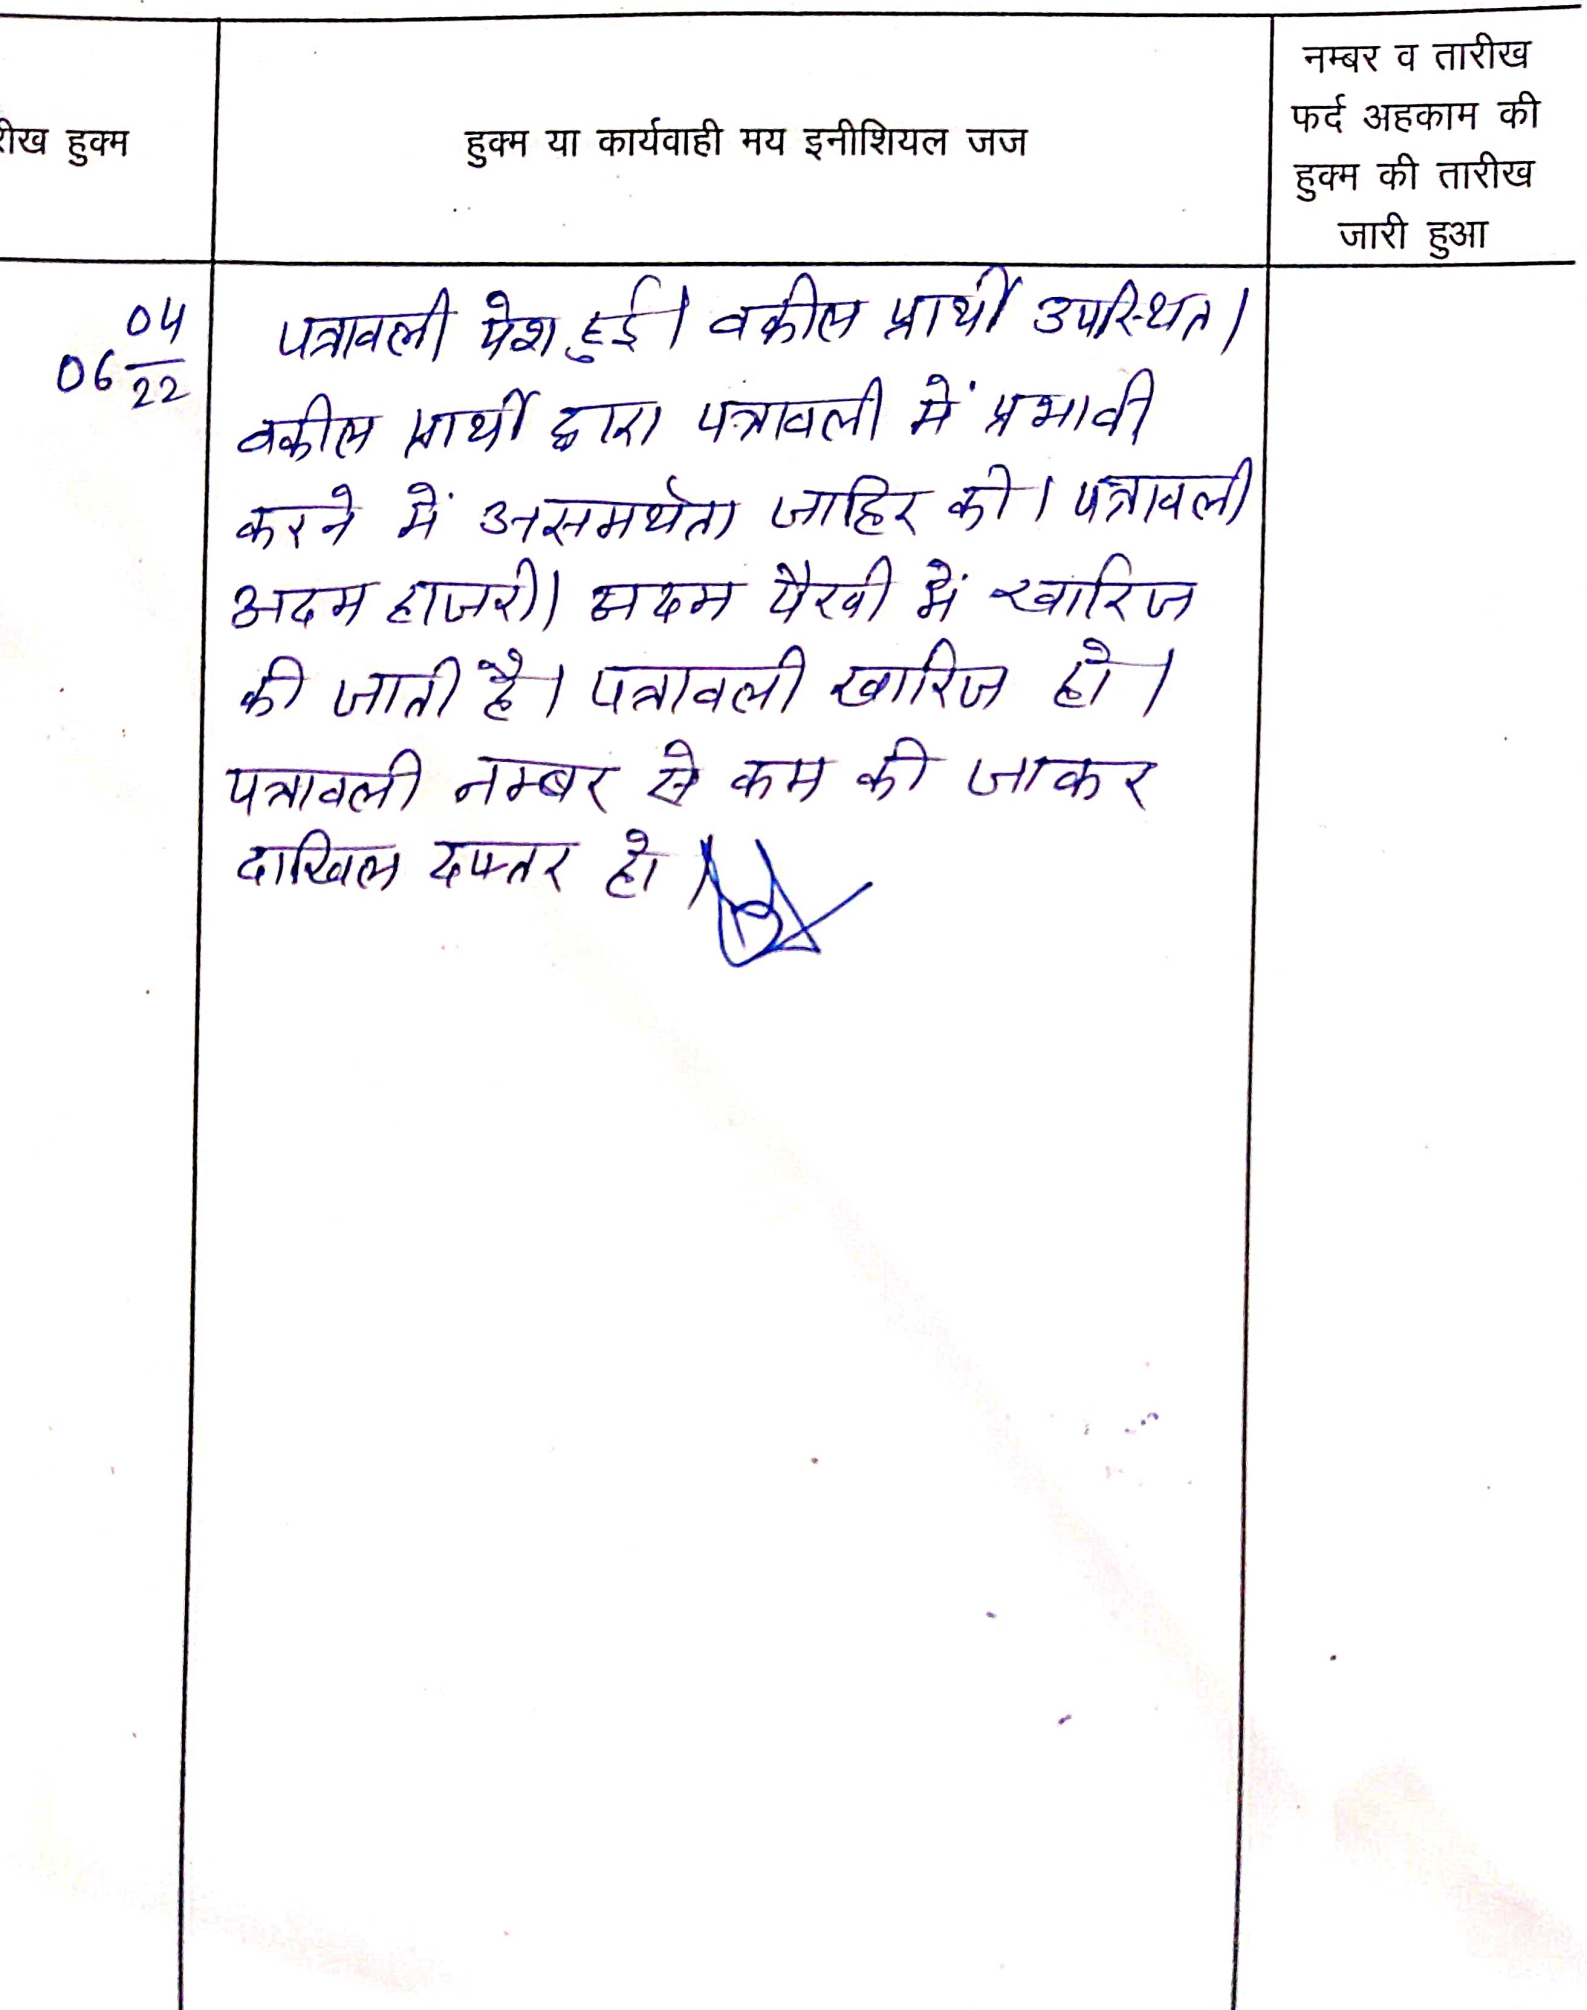 रीख हुक्म
हुक्म या कार्यवाही मय इनीशियल जज
नम्बर व तारीख
फर्द अहकाम की
हुक्म की तारीख
जारी हुआ
04
06
22
पत्रावली पेश हुई। वकील प्रार्थी उपस्थित।
वकील प्रार्थी द्वारा पत्रावली में प्रभावी
करने में असमर्थता जाहिर की। पत्रावली
अदम हाजरी। अदम पैरवी में खारिज
की जाती है। पत्रावली खारिज हो।
पत्रावली नम्बर से कम की जाकर
दाखिल दफ्तर हो।